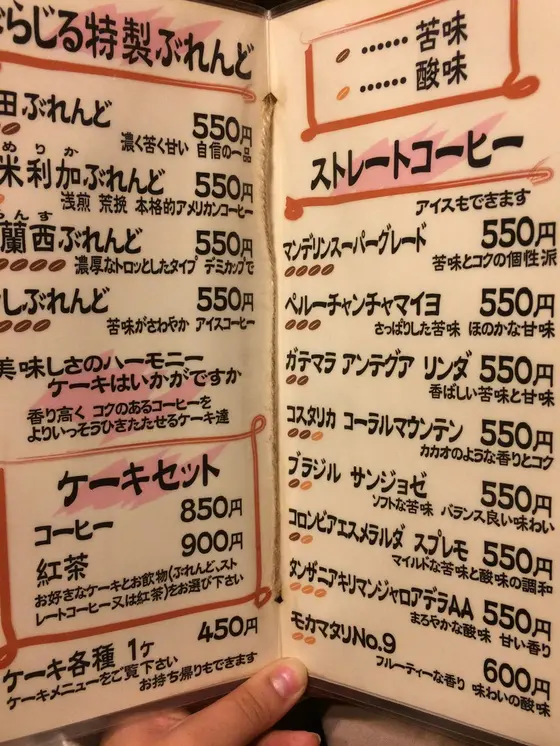 らじる特製ぶれんど
田ぶれんど 550円
濃く苦く甘い 自信の一品
めりか
米利加ぶれんど 550円
浅煎 荒挽 本格的アメリカンコーヒー
らんす
蘭西ぶれんど 550円
濃厚なトロッとしたタイプ デミカップで
しぶれんど 550円
苦味がさわやか アイスコーヒー
美味しさのハーモニー
ケーキはいかがですか
香り高く コクのあるコーヒーを
よりいっそうひきたたせるケーキ達
ケーキセット
コーヒー 850円
紅茶 900円
お好きなケーキとお飲物(ぶれんど、スト
レートコーヒー又は紅茶)をお選び下さい
ケーキ各種 1ケ 450円
ケーキメニューをご覧下さい
お持ち帰りもできます
…… 苦味
…… 酸味
ストレートコーヒー
アイスもできます
マンデリンスーパーグレード 550円
苦味とコクの個性派
ペルーチャンチャマイヨ 550円
さっぱりした苦味 ほのかな甘味
ガテマラ アンテグア リンダ 550円
香ばしい苦味と甘味
コスタリカ コーラルマウンテン 550円
カカオのような香りとコク
ブラジル サンジョゼ 550円
ソフトな苦味 バランス良い味わい
コロンビアエスメラルダ スプレモ 550円
マイルドな苦味と酸味の調和
タンザニアキリマンジャロアデラAA 550円
まろやかな酸味 甘い香り
モカマタリNo.9 600円
フルーティーな香り 味わいの酸味